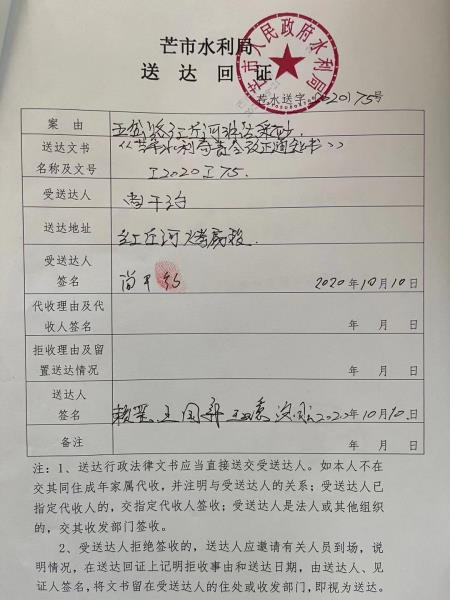 芒市水利局
送达回证
芒市人民政府水利局
芒水送字 [2020]75号
案由
红丘河非法采砂
送达文书
名称及文号
《芒市水利局责令改正通知书》
[2020]75.
受送达人
尚干约
送达地址
红丘河
受送达人
签名
尚干约
2020年10月10日
代收理由及代
收人签名
年 月 日
拒收理由及留
置送达情况
年 月 日
送达人
签名
2020年10月10日
备注
年 月 日
注：1、送达行政法律文书应当直接送交受送达人。如本人不在
交其同住成年家属代收，并注明与受送达人的关系；受送达人已
指定代收人的，交指定代收人签收；受送达人是法人或其他组织
的，交其收发部门签收。
2、受送达人拒绝签收的，送达人应邀请有关人员到场，说
明情况，在送达回证上记明拒收事由和送达日期，由送达人、见
证人签名，将文书留在受送达人的住处或收发部门，即视为送达。